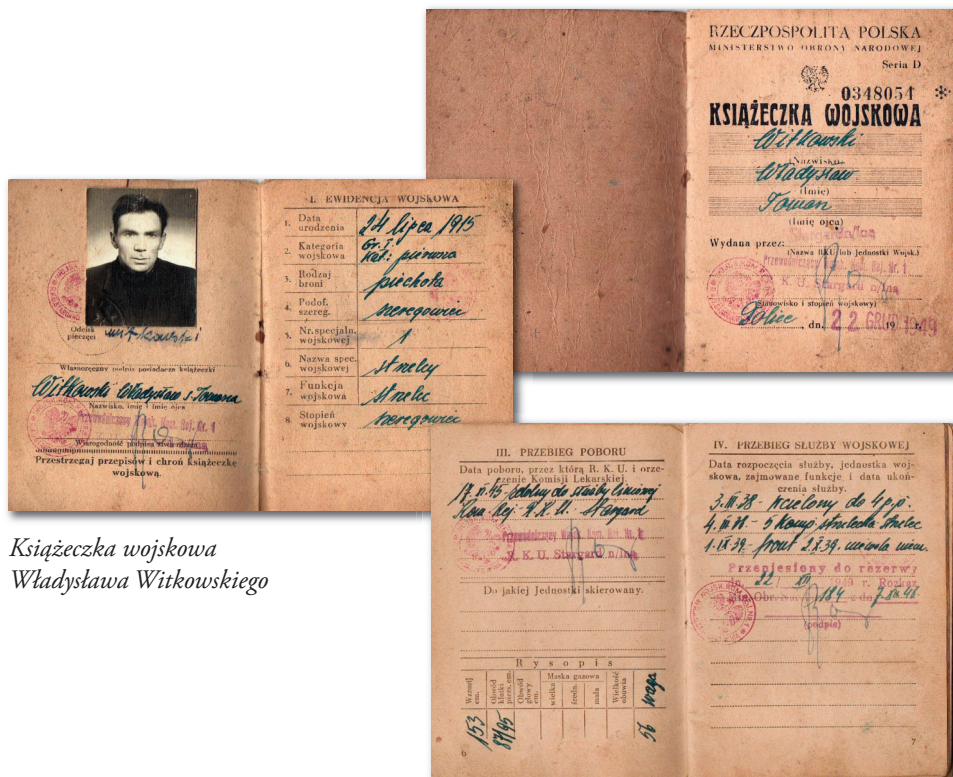 RZECZPOSPOLITA POLSKA
MINISTERSTWO OBRONY NARODOWEJ
Seria D
0348054
KSIĄŻECZKA WOJSKOWA
Witkowski
(Nazwisko)
Władysław
(Imię)
Toman
(Imię ojca)
Wydana przez:
(Nazwa RKU lub jednostki Wojsk.)
Przewodniczący
Rej. Nr. 1
K. U. Stargard n/Iną
(Stanowisko i stopień wojskowy)
dn. 22 GRUD 1949 r.
Odcisk
pieczęci
Witkowski
Własnoręczny podpis posiadacza książeczki
Witkowski Władysław s. Tomana
Nazwisko, imię i imię ojca
Przewodniczący
Rej. Nr. 1
Wiarogodność podpisu stwierdzam
Przestrzegaj przepisów i chroń książeczkę
wojskową.
I. EWIDENCJA WOJSKOWA
1. Data urodzenia 24 lipca 1915
2. Kategoria wojskowa Gr. I Kat: pierwsza
3. Rodzaj broni piechota
4. Podof. szereg. szeregowiec
5. Nr. specjaln. wojskowej 1
6. Nazwa spec. wojskowej strzelcy
7. Funkcja wojskowa strzelec
8. Stopień wojskowy szeregowiec
Książeczka wojskowa
Władysława Witkowskiego
III. PRZEBIEG POBORU
Data poboru, przez którą R. K. U. i orze-
czenie Komisji Lekarskiej.
zdolny do służby liniowej
Kom. Rej. R.K.U. Stargard
Przewodniczący
R. K. U. Stargard n/Iną
Do jakiej Jednostki skierowany.
Rysopis
Wzrost cm.
Obwód klatki piers. cm.
Obwód głowy cm.
Maska gazowa
wielka
średn.
mała
Wielkość obuwia
waga
153
87/95
56
6
IV. PRZEBIEG SŁUŻBY WOJSKOWEJ
Data rozpoczęcia służby, jednostka woj-
skowa, zajmowane funkcje i data ukoń-
czenia służby.
wcielony do 4 p.p.
5 Komp. strzelecka strzelec
1.IX.39. front 2.X.39. niewola niem.
Przeniesiony do rezerwy
dn. 22 XII 1949 r. Rozkaz
Min. Obr. Nar. 184 z dn
(podpis)
7